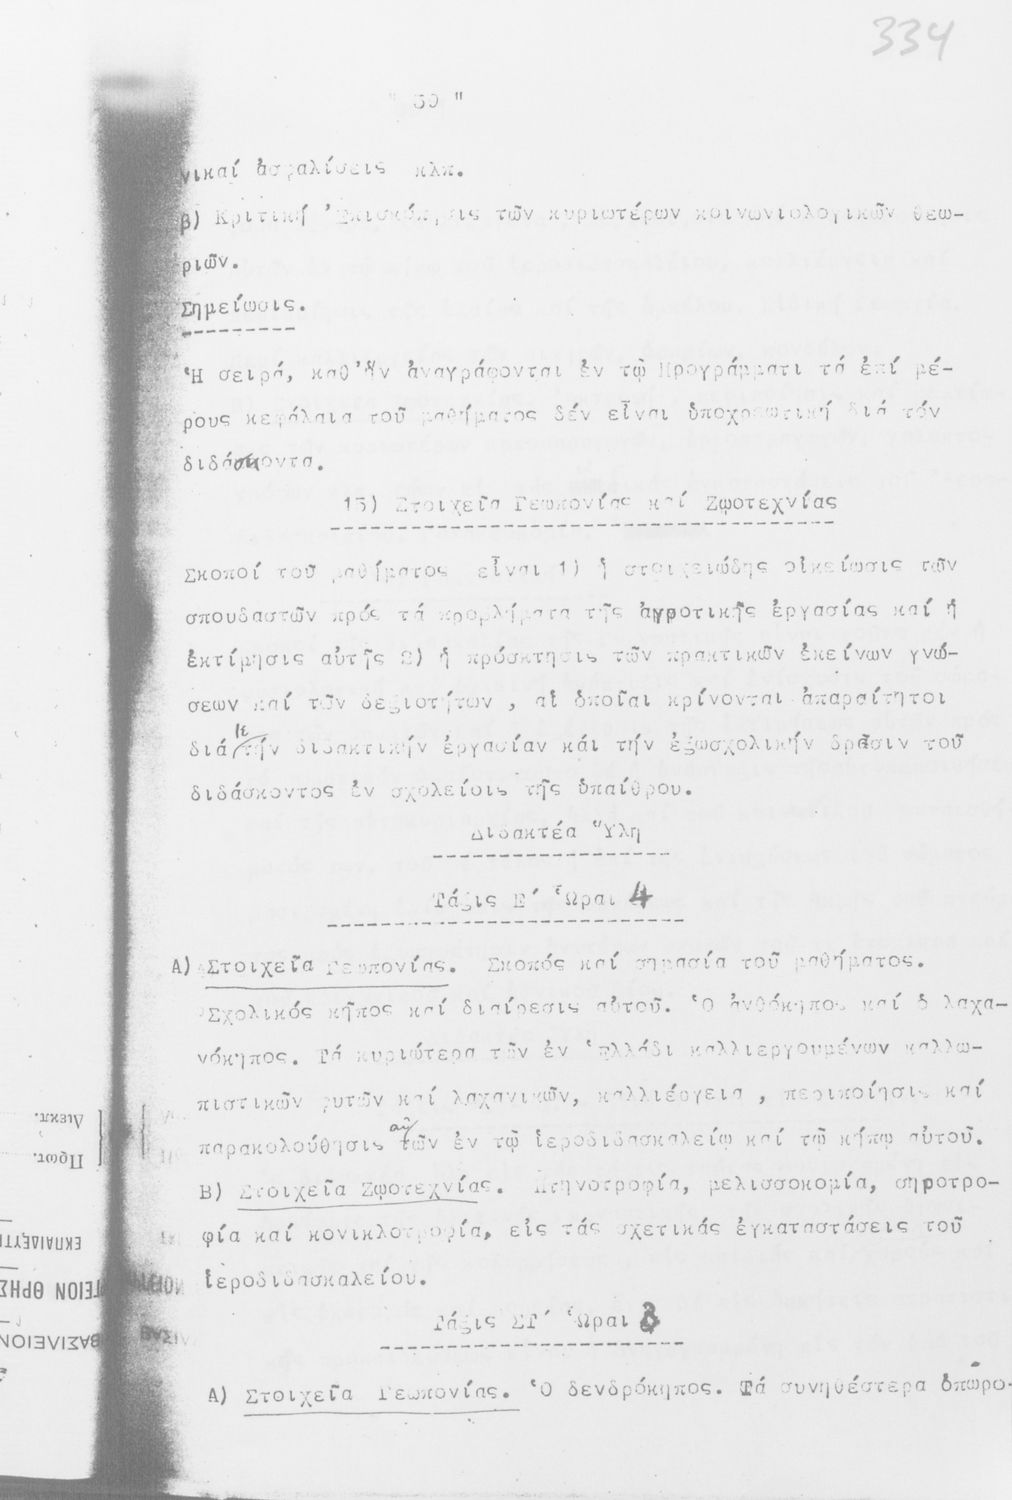 334
" 50 "
νικαί ἀσφαλίσεις κλπ.
β) Κριτική Ἐπισκόπησις τῶν κυριωτέρων κοινωνιολογικῶν θεω-
ριῶν.
Σημείωσις.
Ἡ σειρά, καθ'ἥν ἀναγράφονται ἐν τῷ Προγράμματι τά ἐπί μέ-
ρους κεφάλαια τοῦ μαθήματος δέν εἶναι ὑποχρεωτική διά τόν
διδάσκοντα.
15) Στοιχεῖα Γεωπονίας καί Ζῳοτεχνίας
Σκοποί τοῦ μαθήματος εἶναι 1) ἡ στοιχειώδης οἰκείωσις τῶν
σπουδαστῶν πρός τά προβλήματα τῆς ἀγροτικῆς ἐργασίας καί ἡ
ἐκτίμησις αὐτῆς 2) ἡ πρόσκτησις τῶν πρακτικῶν ἐκείνων γνώ-
σεων καί τῶν δεξιοτήτων , αἱ ὁποῖαι κρίνονται ἀπαραίτητοι
διά τήν διδακτικήν ἐργασίαν κάι τήν ἐξωσχολικήν δρᾶσιν τοῦ
διδάσκοντος ἐν σχολείοις τῆς ὑπαίθρου.
Διδακτέα Ὕλη
Τάξις Ε΄ Ὧραι 4
Α) Στοιχεῖα Γεωπονίας. Σκοπός καί σημασία τοῦ μαθήματος.
Σχολικός κῆπος καί διαίρεσις αὐτοῦ. Ὁ ἀνθόκηπος καί ὁ λαχα-
νόκηπος. Τά κυριώτερα τῶν ἐν Ἑλλάδι καλλιεργουμένων καλλω-
πιστικῶν φυτῶν καί λαχανικῶν, καλλιέργεια , περιποίησις καί
παρακολούθησις αὐτῶν ἐν τῷ ἱεροδιδασκαλείῳ καί τῷ κήπῳ αὐτοῦ.
Β) Στοιχεῖα Ζῳοτεχνίας. Πτηνοτροφία, μελισσοκομία, σηροτρο-
φία καί κονικλοτροφία, εἰς τάς σχετικάς ἐγκαταστάσεις τοῦ
ἱεροδιδασκαλείου.
Τάξις ΣΤ΄ Ὧραι 3
Α) Στοιχεῖα Γεωπονίας. Ὁ δενδρόκηπος. Τά συνηθέστερα ὀπωρο-
Διεκπ.
Πρωτ.
ΕΚΠΑΙΔΕΥΤΙ
ΒΑΣΙΛΕΙΟΝ